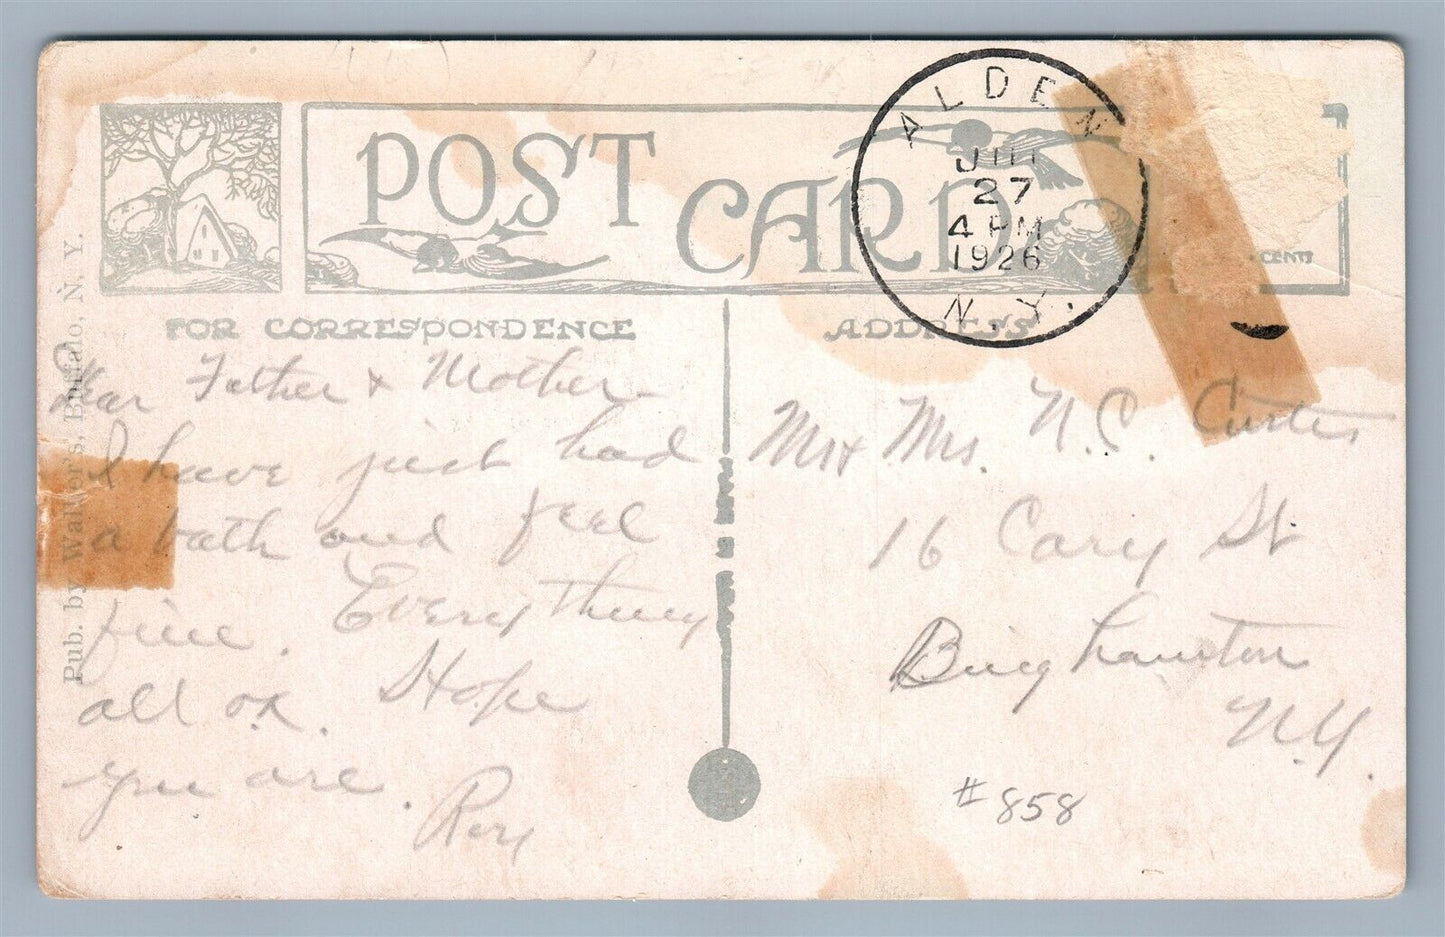 POST CARD
ALDEN
27
4 PM
1926
N.Y.
FOR CORRESPONDENCE
ADDRESS
Pub. by Walker's, Buffalo, N. Y.
Dear Father & Mother
I have just had
a bath and feel
fine. Everything
all ok. Hope
you are.
Roy
Mr & Mrs. N.C. Curtis
16 Cary St
Binghamton
N.Y.
#858